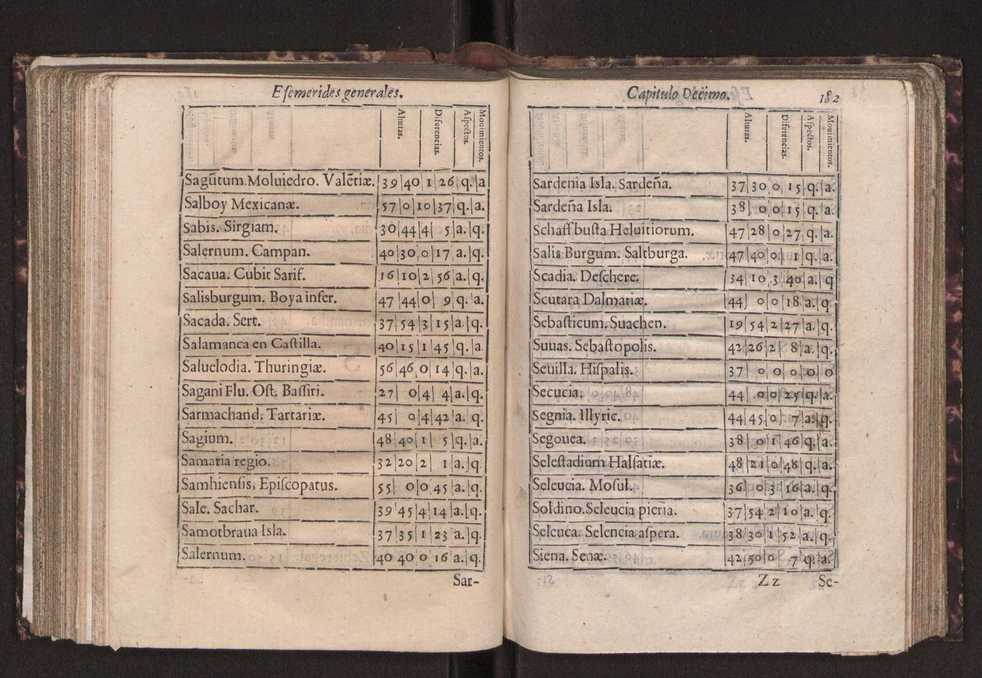 Esemerides generales.
Alturas. Diferencias. Aspectos. Mouimientos.
Sagūtum. Moluiedro. Valētiæ. 39 40 1 26 q. a
Salboy Mexicanæ. 57 0 10 37 q. a.
Sabis. Sirgiam. 30 44 4 5 a. q.
Salernum. Campan. 40 30 0 17 a. q.
Sacaua. Cubit Sarif. 16 10 2 56 a. q.
Salisburgum. Boya infer. 47 44 0 9 q. a.
Sacada. Sert. 37 54 3 15 a. q.
Salamanca en Castilla. 40 15 1 45 q. a.
Saluelodia. Thuringiæ. 56 46 0 14 q. a.
Sagani Flu. Ost. Bassiri. 27 0 4 4 a. q.
Sarmachand. Tartariæ. 45 0 4 42 a. q.
Sagium. 48 40 1 5 q. a.
Samaria regio. 32 20 2 1 a. q.
Samhiensis, Episcopatus. 55 0 0 45 a. q.
Sale. Sachar. 39 45 4 14 a. q.
Samotbraua Isla. 37 35 1 23 a. q.
Salernum. 40 40 0 16 a. q.
Sar-
Capitulo Dećimo. 182
Alturas. Diferencias. Aspectos. Mouimientos.
Sardenia Isla. Sardeña. 37 30 0 15 q. a.
Sardeña Isla. 38 0 0 15 q. a.
Schasf busta Heluitiorum. 47 28 0 27 q. a.
Salis Burgum. Saltburga. 47 40 0 1 q. a.
Scadia. Deschere. 34 10 3 40 a. q
Scutara Dalmatiæ. 44 0 0 18 a. q
Sebasticum. Suachen. 19 54 2 27 a. q.
Suuas. Sebastopolis. 42 26 2 8 a. q.
Seuilla. Hispalis. 37 0 0 0 0 0
Secucia. 44 0 0 25 q. a.
Segnia. Illyric. 44 45 0 7 a. q.
Segouea. 38 0 1 46 q. a.
Selestadium Halsatiæ. 48 21 0 48 q. a.
Seleucia. Mosul. 36 0 3 16 a. q.
Soldino. Seleucia pieria. 37 54 2 10 a. q.
Seleuca. Selencia aspera. 38 30 1 52 a. q.
Siena. Senæ. 42 50 0 7 q. a.
Z z Se-